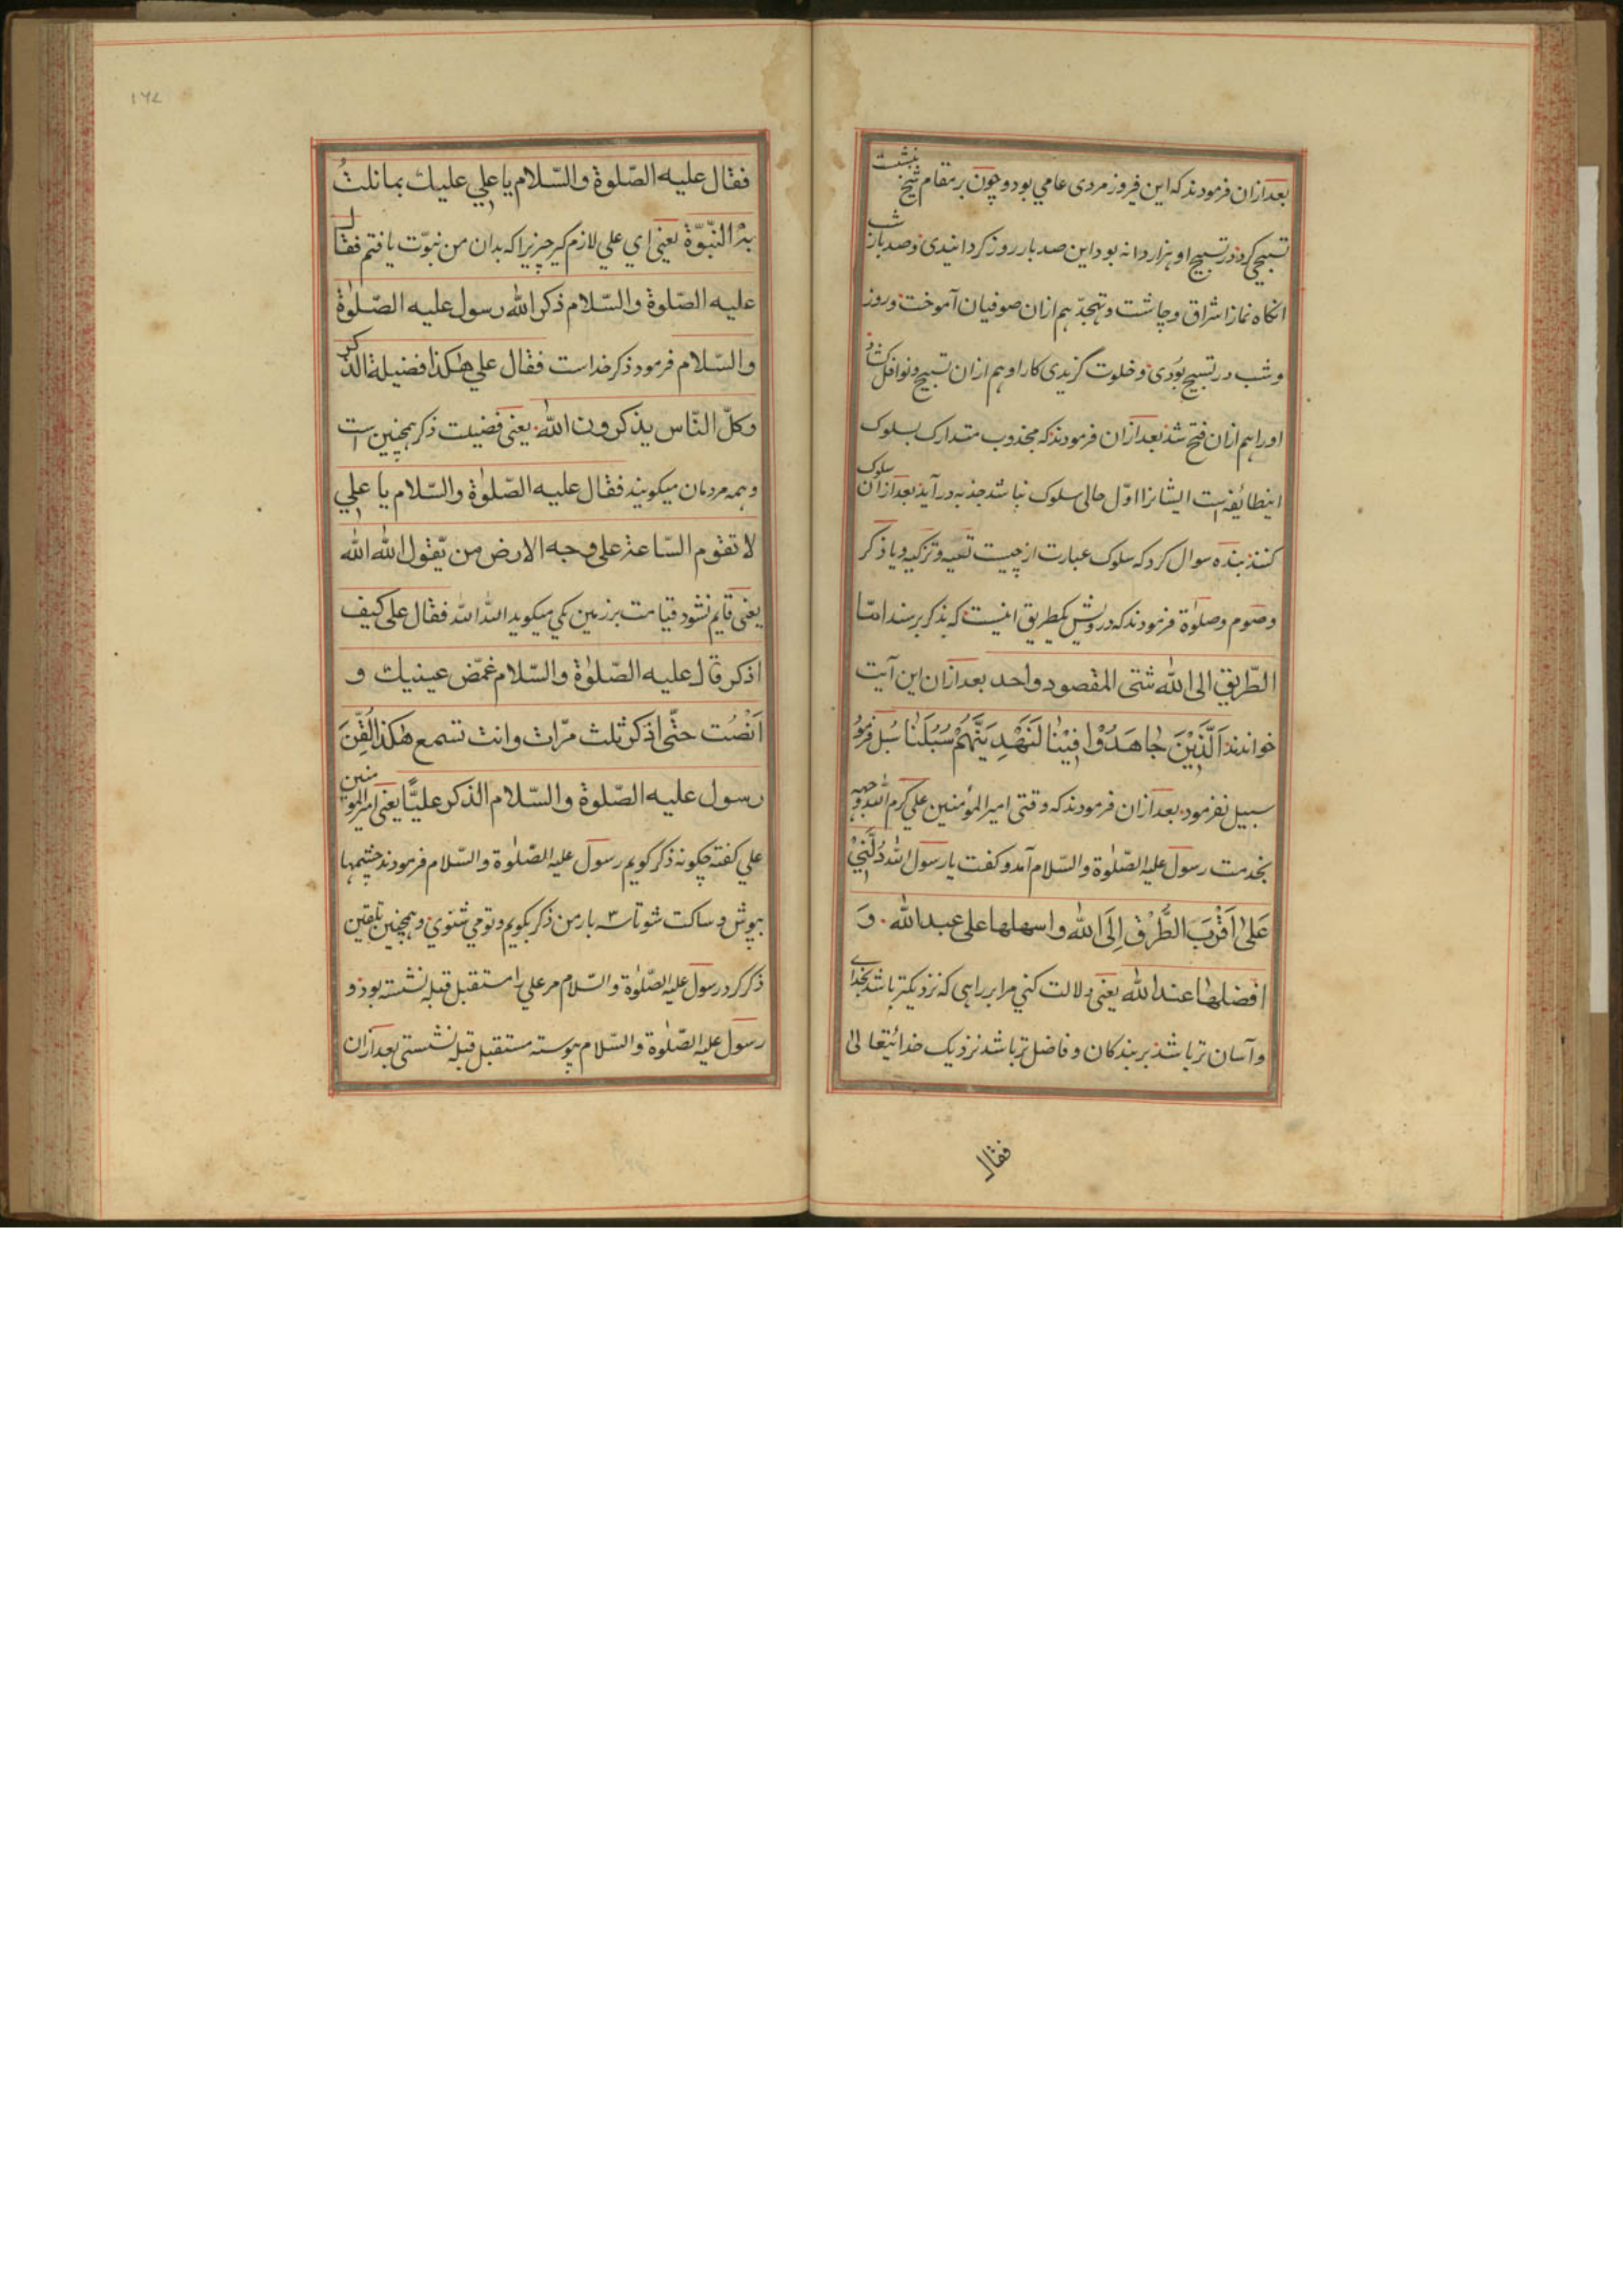 بعد ازان فرمودند که این فیروز مردی عامی بود و چون بر مقام شیخ بنشست
تسبیحی کرد در تسبیح او هزار دانه بود این صد بار روز کردانیدی و صد بار شب
انکاه نماز اشراق و چاشت و تهجد هم ازان صوفیان آموخت و روز
و شب در تسبیح بودی و خلوت کزیدی کار او هم ازان تسبیح و نوافل کشاد
اورا هم ازان فتح شد بعد ازان فرمودند که مجذوب متدارک بسلوک
اینطائفه است ایشانرا اوّل حالی سلوک نباشد جذبه در آید بعد ازان سلوک
کنند بنده سوال کرد که سلوک عبارت از چیست تصیه و تزکیه و یا ذکر
و صوم و صلوٰة فرمودند که درویش یکطریق انیست که بذکر برسند امّا
الطّریق الی الله شتی المقصود واحد بعد ازان این آیت
خواندند اَلَّذِیْنَ جَاهَدُوْا فِیْنَا لَنَهْدِیَنَّهُمْ سُبُلَنَا سُبُل فرمود
سبیل نفرمود بعد ازان فرمودند که وقتی امیر المؤمنین علی کرم الله وجهه
بخدمت رسول علیه الصّلوٰة والسّلام آمد و کفت یا رسول الله دُلَّنِیْ
عَلیٰ اَقْرَبَ الطُّرُقِ اِلَی الله واسهلها علی عبد الله وَ
افضلها عند الله یعنی دلالت کنی مرا بر راهی که نزدیکتر باشد بخدای
و آسان تر باشد بر بندکان و فاضل تر باشد نزدیک خدائیتعالی
فقال
۱۶۷
فقال علیه الصّلوة والسّلام یا علی علیك بما نلتُ
بهِ النّبوّة یعنی ای علی لازم کیر چیزیرا که بدان من نبوّت یافتم فقال
علیه الصّلوة والسّلام ذکر الله رسول علیه الصّلوٰة
والسّلام فرمود ذکر خداست فقال علی هٰکذا فضیلة الذکر
وکلّ النّاس یذکرون الله یعنی فضیلت ذکر همچنین است
و همه مردمان میکویند فقال علیه الصّلوٰة والسّلام یا علی
لا تقوم السّاعة علی وجه الارض من یّقول الله الله
یعنی قایم نشود قیامت بر زمین یکی میکوید الله الله فقال علی کیف
اذکر قال علیه الصّلوٰة والسّلام غمّض عینیك و
اَنْصُت حتّی اذکر ثلث مرّات وانت تسمع هٰکذا لُقِّنَ
رسول علیه الصّلوة والسّلام الذکر علیًّا یعنی امیر المؤمنین
علی کفته چکونه ذکر کویم رسول علیه الصّلوٰة والسّلام فرمودند چشمها
بپوش و ساکت شو تا سه بار من ذکر بکویم و تو می شنوی و همچنین تلقین
ذکر کرد رسول علیه الصّلوٰة والسّلام مر علی را مستقبل قبله نشسته بود و
رسول علیه الصّلوٰة والسّلام پیوسته مستقبل قبله نشستی بعد ازان